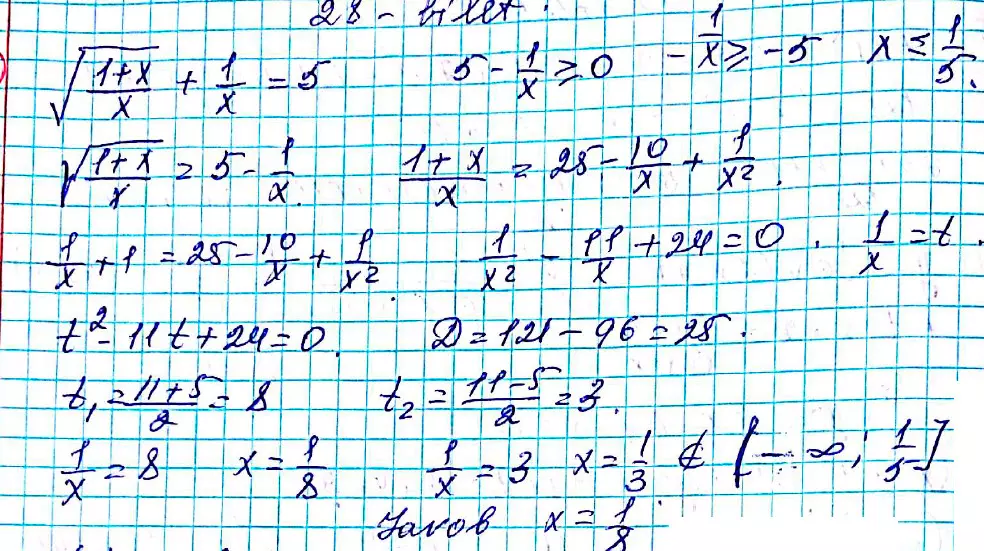 28 - bilet.
√((1+x)/x) + 1/x = 5    5 - 1/x ≥ 0    - 1/x ≥ -5    x ≤ 1/5.
√((1+x)/x) = 5 - 1/x.    (1+x)/x = 25 - 10/x + 1/x².
1/x + 1 = 25 - 10/x + 1/x².    1/x² - 11/x + 24 = 0.    1/x = t.
t² - 11t + 24 = 0.    D = 121 - 96 = 25.
t₁ = (11+5)/2 = 8    t₂ = (11-5)/2 = 3.
1/x = 8    x = 1/8    1/x = 3    x = 1/3 ∉ [-∞; 1/5]
Жавов x = 1/8